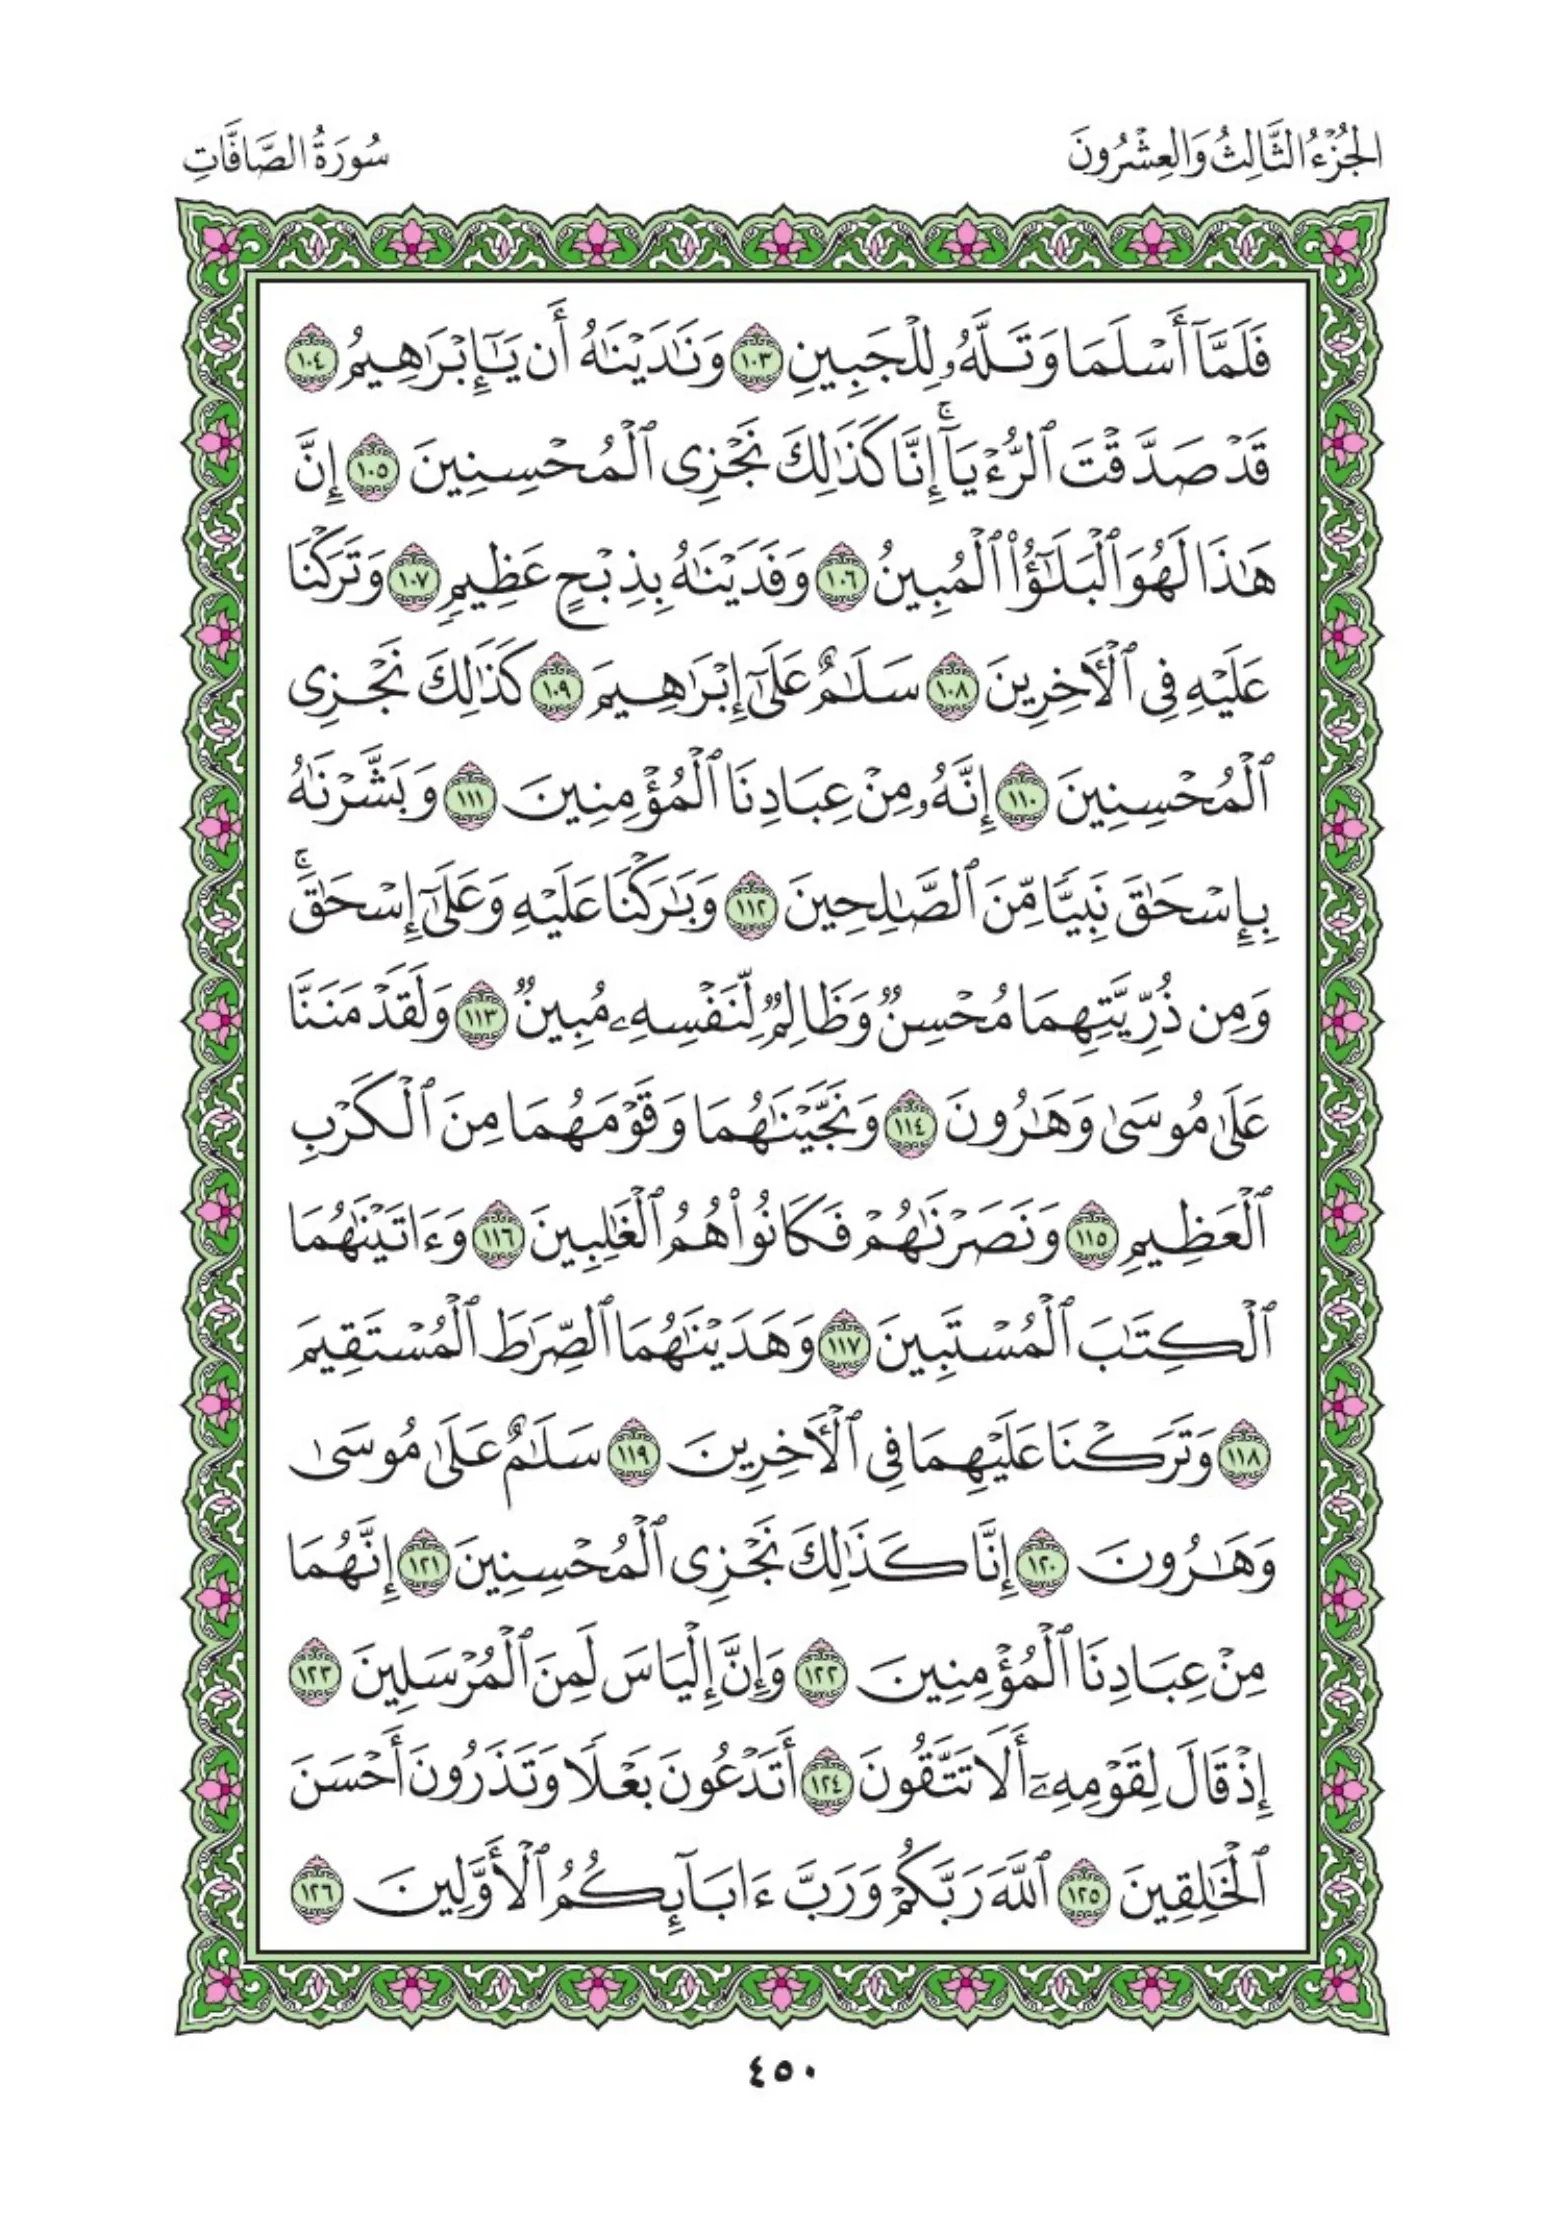 الجُزْءُ الثَّالِثُ وَالعِشْرُونَ
سُورَةُ الصَّافَّاتِ
فَلَمَّآ أَسْلَمَا وَتَلَّهُۥ لِلْجَبِينِ ١٠٣ وَنَٰدَيْنَٰهُ أَن يَٰٓإِبْرَٰهِيمُ ١٠٤
قَدْ صَدَّقْتَ ٱلرُّءْيَآ ۚ إِنَّا كَذَٰلِكَ نَجْزِى ٱلْمُحْسِنِينَ ١٠٥ إِنَّ
هَٰذَا لَهُوَ ٱلْبَلَٰٓؤُا۟ ٱلْمُبِينُ ١٠٦ وَفَدَيْنَٰهُ بِذِبْحٍ عَظِيمٍ ١٠٧ وَتَرَكْنَا
عَلَيْهِ فِى ٱلْأَخِرِينَ ١٠٨ سَلَٰمٌ عَلَىٰٓ إِبْرَٰهِيمَ ١٠٩ كَذَٰلِكَ نَجْزِى
ٱلْمُحْسِنِينَ ١١٠ إِنَّهُۥ مِنْ عِبَادِنَا ٱلْمُؤْمِنِينَ ١١١ وَبَشَّرْنَٰهُ
بِإِسْحَٰقَ نَبِيًّا مِّنَ ٱلصَّٰلِحِينَ ١١٢ وَبَٰرَكْنَا عَلَيْهِ وَعَلَىٰٓ إِسْحَٰقَ ۚ
وَمِن ذُرِّيَّتِهِمَا مُحْسِنٌ وَظَالِمٌ لِّنَفْسِهِۦ مُبِينٌ ١١٣ وَلَقَدْ مَنَنَّا
عَلَىٰ مُوسَىٰ وَهَٰرُونَ ١١٤ وَنَجَّيْنَٰهُمَا وَقَوْمَهُمَا مِنَ ٱلْكَرْبِ
ٱلْعَظِيمِ ١١٥ وَنَصَرْنَٰهُمْ فَكَانُوا۟ هُمُ ٱلْغَٰلِبِينَ ١١٦ وَءَاتَيْنَٰهُمَا
ٱلْكِتَٰبَ ٱلْمُسْتَبِينَ ١١٧ وَهَدَيْنَٰهُمَا ٱلصِّرَٰطَ ٱلْمُسْتَقِيمَ
١١٨ وَتَرَكْنَا عَلَيْهِمَا فِى ٱلْأَخِرِينَ ١١٩ سَلَٰمٌ عَلَىٰ مُوسَىٰ
وَهَٰرُونَ ١٢٠ إِنَّا كَذَٰلِكَ نَجْزِى ٱلْمُحْسِنِينَ ١٢١ إِنَّهُمَا
مِنْ عِبَادِنَا ٱلْمُؤْمِنِينَ ١٢٢ وَإِنَّ إِلْيَاسَ لَمِنَ ٱلْمُرْسَلِينَ ١٢٣
إِذْ قَالَ لِقَوْمِهِۦٓ أَلَا تَتَّقُونَ ١٢٤ أَتَدْعُونَ بَعْلًا وَتَذَرُونَ أَحْسَنَ
ٱلْخَٰلِقِينَ ١٢٥ ٱللَّهَ رَبَّكُمْ وَرَبَّ ءَابَآئِكُمُ ٱلْأَوَّلِينَ ١٢٦
٤٥٠